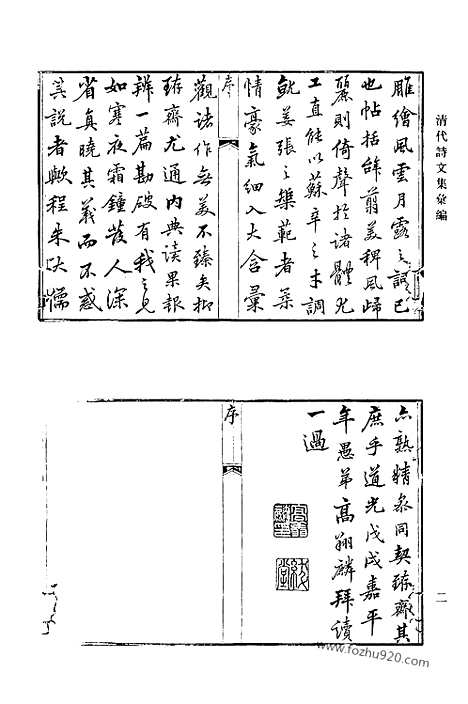 清代詩文集彙編
雕繪風雲月露之詞已
也帖括餘翦美稗風歸
麗則倚聲於諸體尤
工直能以蘇辛之才調
就姜張之榘範者柔
情豪氣細入大含彙
序
觀諸作無美不臻矣抑
齋尤通內典讀果報
辨一篇勘破有我之見
如寒夜霜鐘發人深
省真曉其義而不惑
其說者歟程朱大儒
亦熟精參同契齋其
庶乎道光戊戌嘉平
年愚弟高翔麟拜讀
一過
序
二
www.fozhu920.com